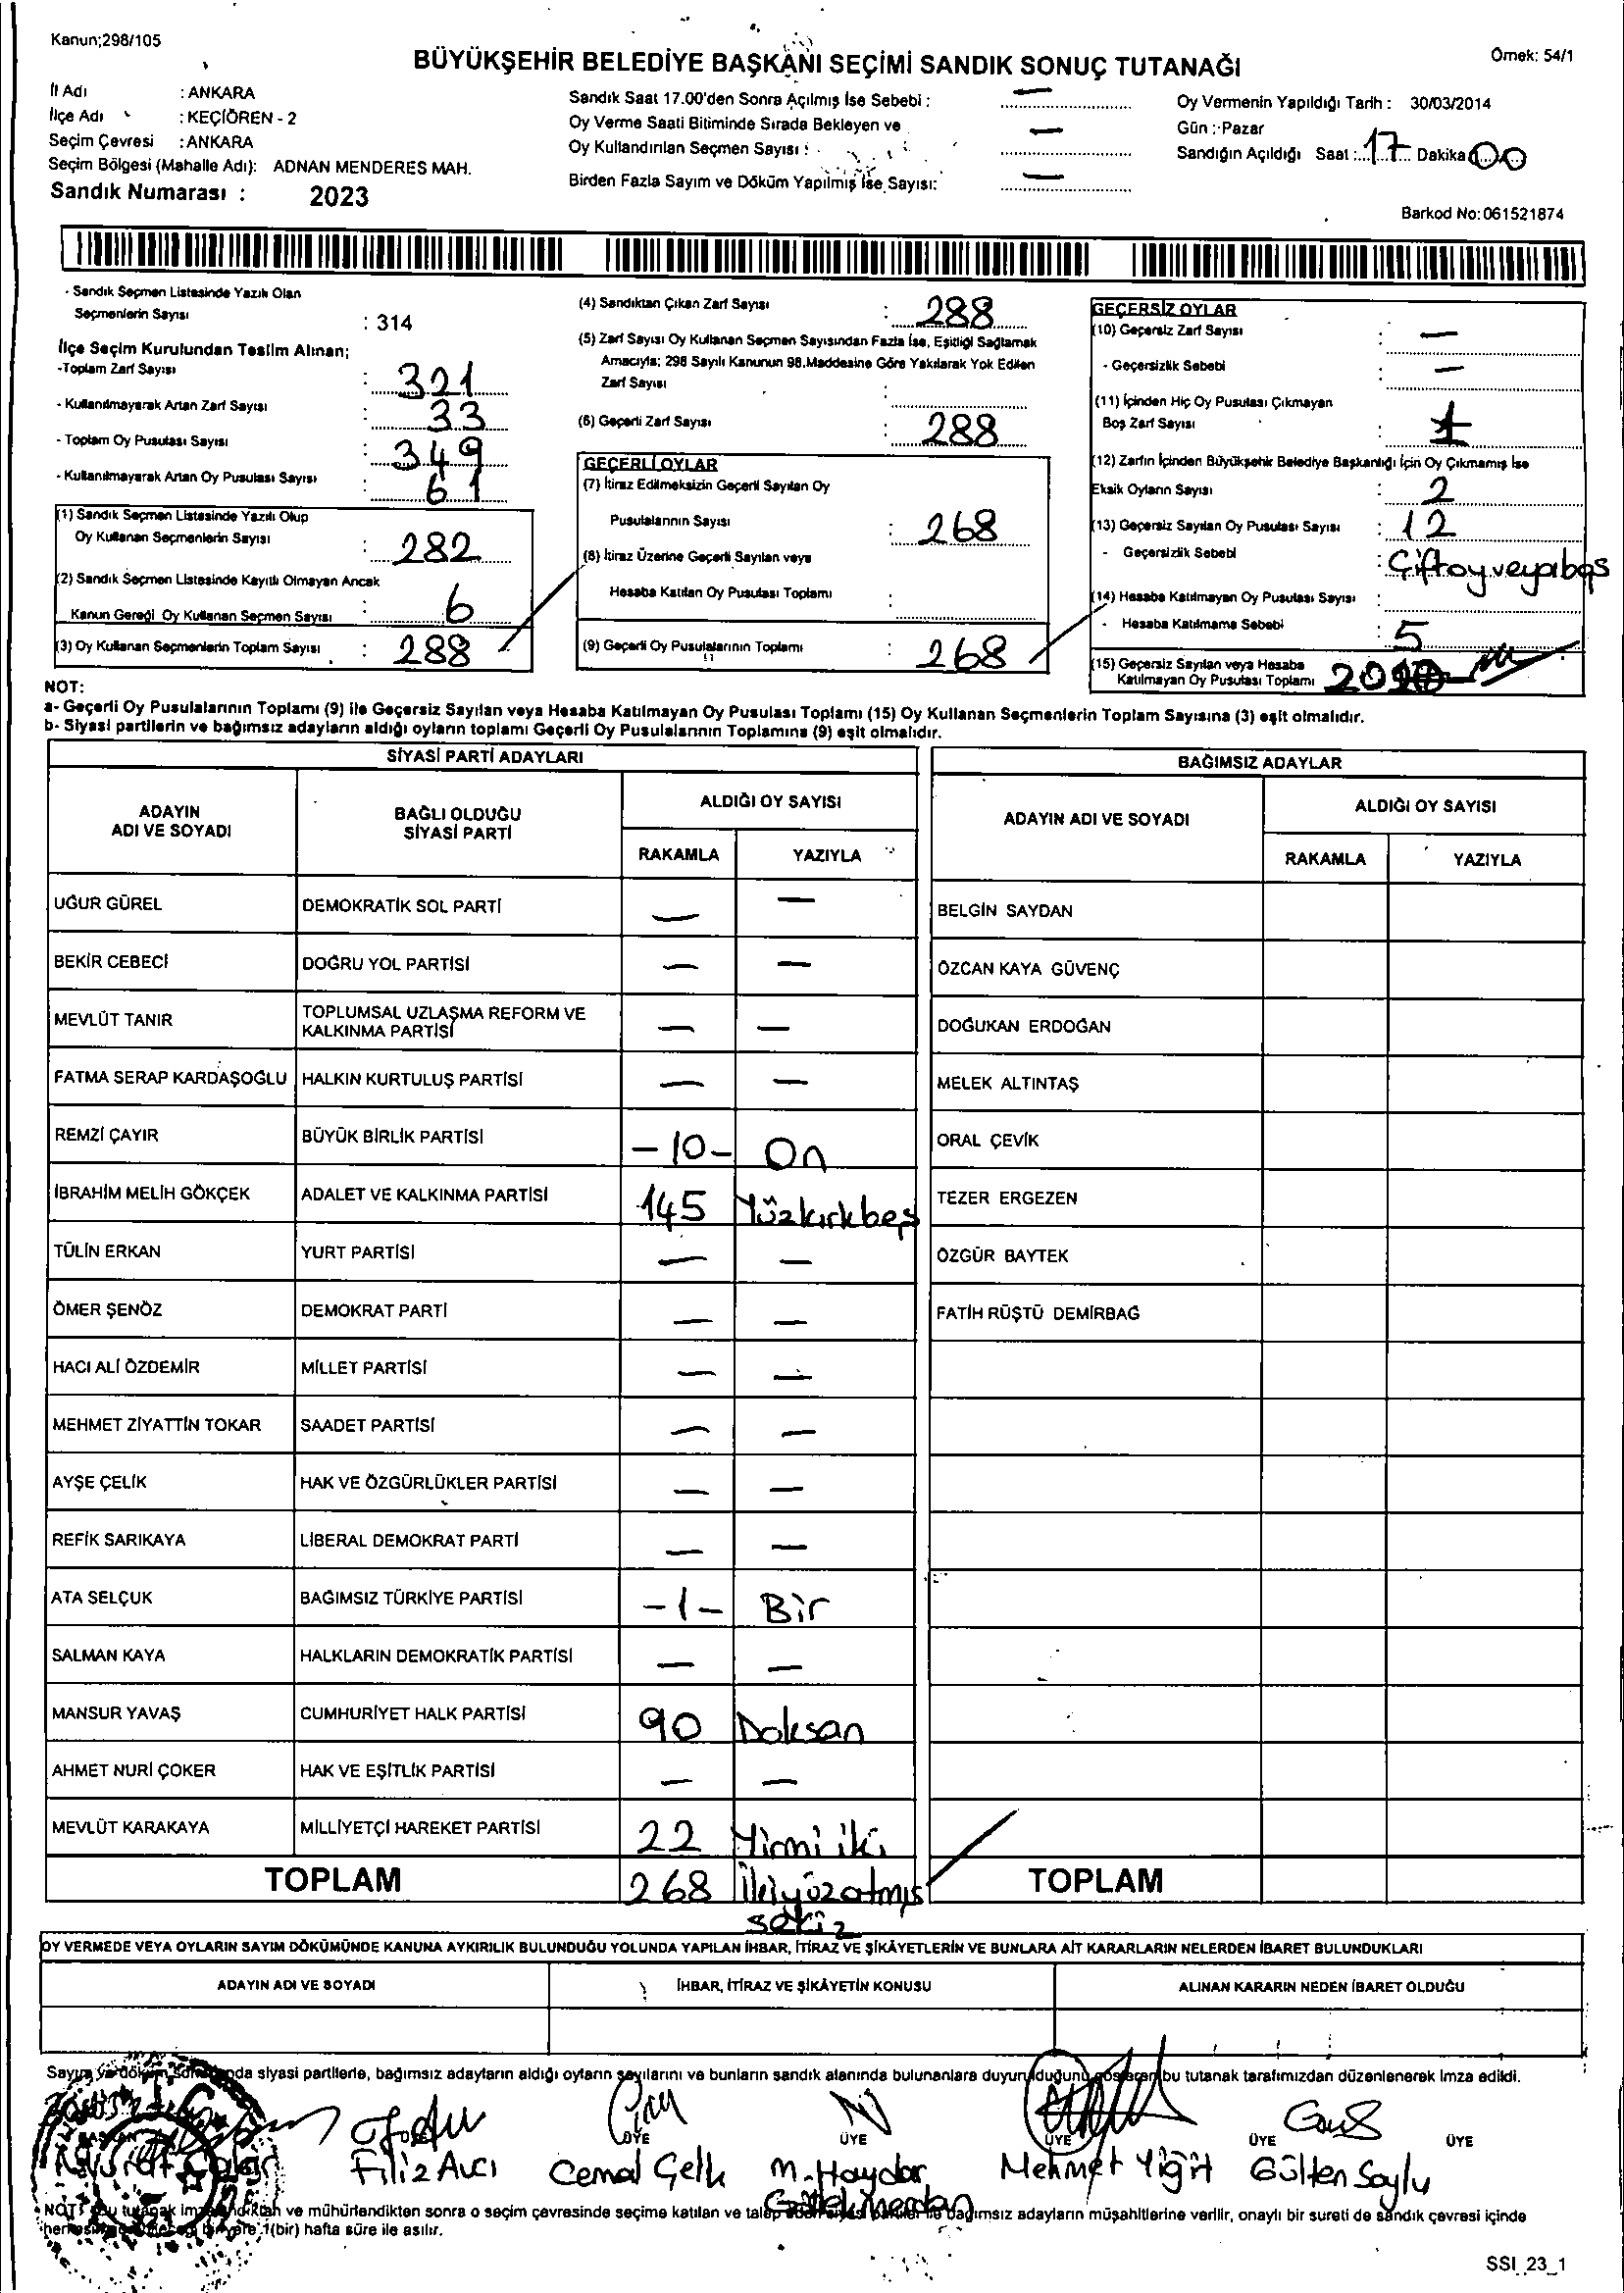 Kanun;298/105
BÜYÜKŞEHİR BELEDİYE BAŞKANI SEÇİMİ SANDIK SONUÇ TUTANAĞI
Örnek: 54/1
İl Adı : ANKARA
İlçe Adı : KEÇİÖREN - 2
Seçim Çevresi : ANKARA
Seçim Bölgesi (Mahalle Adı): ADNAN MENDERES MAH.
Sandık Numarası : 2023
Sandık Saat 17.00'den Sonra Açılmış İse Sebebi : —
Oy Verme Saati Bitiminde Sırada Bekleyen ve
Oy Kullandırılan Seçmen Sayısı : —
Birden Fazla Sayım ve Döküm Yapılmış İse Sayısı: —
Oy Vermenin Yapıldığı Tarih : 30/03/2014
Gün : Pazar
Sandığın Açıldığı Saat : 17 Dakika 00
Barkod No:061521874
- Sandık Seçmen Listesinde Yazılı Olan
Seçmenlerin Sayısı : 314
İlçe Seçim Kurulundan Teslim Alınan;
-Toplam Zarf Sayısı : 321
- Kullanılmayarak Artan Zarf Sayısı : 33
- Toplam Oy Pusulası Sayısı : 349
- Kullanılmayarak Artan Oy Pusulası Sayısı : 61
(1) Sandık Seçmen Listesinde Yazılı Olup
Oy Kullanan Seçmenlerin Sayısı : 282
(2) Sandık Seçmen Listesinde Kayıtlı Olmayan Ancak
Kanun Gereği Oy Kullanan Seçmen Sayısı : 6
(3) Oy Kullanan Seçmenlerin Toplam Sayısı : 288
(4) Sandıktan Çıkan Zarf Sayısı : 288
(5) Zarf Sayısı Oy Kullanan Seçmen Sayısından Fazla İse, Eşitliği Sağlamak
Amacıyla; 298 Sayılı Kanunun 98.Maddesine Göre Yakılarak Yok Edilen
Zarf Sayısı :
(6) Geçerli Zarf Sayısı : 288
GEÇERLİ OYLAR
(7) İtiraz Edilmeksizin Geçerli Sayılan Oy
Pusulalarının Sayısı : 268
(8) İtiraz Üzerine Geçerli Sayılan veya
Hesaba Katılan Oy Pusulası Toplamı :
(9) Geçerli Oy Pusulalarının Toplamı : 268
GEÇERSİZ OYLAR
(10) Geçersiz Zarf Sayısı : —
- Geçersizlik Sebebi : —
(11) İçinden Hiç Oy Pusulası Çıkmayan
Boş Zarf Sayısı : 1
(12) Zarfın İçinden Büyükşehir Belediye Başkanlığı İçin Oy Çıkmamış İse
Eksik Oyların Sayısı : 2
(13) Geçersiz Sayılan Oy Pusulası Sayısı : 12
- Geçersizlik Sebebi : Çift oy veya boş
(14) Hesaba Katılmayan Oy Pusulası Sayısı :
- Hesaba Katılmama Sebebi : 5
(15) Geçersiz Sayılan veya Hesaba
Katılmayan Oy Pusulası Toplamı 20
NOT:
a- Geçerli Oy Pusulalarının Toplamı (9) ile Geçersiz Sayılan veya Hesaba Katılmayan Oy Pusulası Toplamı (15) Oy Kullanan Seçmenlerin Toplam Sayısına (3) eşit olmalıdır.
b- Siyasi partilerin ve bağımsız adayların aldığı oyların toplamı Geçerli Oy Pusulalarının Toplamına (9) eşit olmalıdır.
SİYASİ PARTİ ADAYLARI
ADAYIN ADI VE SOYADI BAĞLI OLDUĞU SİYASİ PARTİ ALDIĞI OY SAYISI
RAKAMLA YAZIYLA
UĞUR GÜREL DEMOKRATİK SOL PARTİ — —
BEKİR CEBECİ DOĞRU YOL PARTİSİ — —
MEVLÜT TANIR TOPLUMSAL UZLAŞMA REFORM VE KALKINMA PARTİSİ — —
FATMA SERAP KARDAŞOĞLU HALKIN KURTULUŞ PARTİSİ — —
REMZİ ÇAYIR BÜYÜK BİRLİK PARTİSİ -10- On
İBRAHİM MELİH GÖKÇEK ADALET VE KALKINMA PARTİSİ 145 Yüzkırkbeş
TÜLİN ERKAN YURT PARTİSİ — —
ÖMER ŞENÖZ DEMOKRAT PARTİ — —
HACI ALİ ÖZDEMİR MİLLET PARTİSİ — —
MEHMET ZİYATTİN TOKAR SAADET PARTİSİ — —
AYŞE ÇELİK HAK VE ÖZGÜRLÜKLER PARTİSİ — —
REFİK SARIKAYA LİBERAL DEMOKRAT PARTİ — —
ATA SELÇUK BAĞIMSIZ TÜRKİYE PARTİSİ -1- Bir
SALMAN KAYA HALKLARIN DEMOKRATİK PARTİSİ — —
MANSUR YAVAŞ CUMHURİYET HALK PARTİSİ 90 Doksan
AHMET NURİ ÇOKER HAK VE EŞİTLİK PARTİSİ — —
MEVLÜT KARAKAYA MİLLİYETÇİ HAREKET PARTİSİ 22 Yirmi iki
TOPLAM 268 İkiyüzatmış
sekiz
BAĞIMSIZ ADAYLAR
ADAYIN ADI VE SOYADI ALDIĞI OY SAYISI
RAKAMLA YAZIYLA
BELGİN SAYDAN
ÖZCAN KAYA GÜVENÇ
DOĞUKAN ERDOĞAN
MELEK ALTINTAŞ
ORAL ÇEVİK
TEZER ERGEZEN
ÖZGÜR BAYTEK
FATİH RÜŞTÜ DEMİRBAĞ
TOPLAM
OY VERMEDE VEYA OYLARIN SAYIM DÖKÜMÜNDE KANUNA AYKIRILIK BULUNDUĞU YOLUNDA YAPILAN İHBAR, İTİRAZ VE ŞİKÂYETLERİN VE BUNLARA AİT KARARLARIN NELERDEN İBARET BULUNDUKLARI
ADAYIN ADI VE SOYADI İHBAR, İTİRAZ VE ŞİKÂYETİN KONUSU ALINAN KARARIN NEDEN İBARET OLDUĞU
Sayım ve döküm siyasi partilerle, bağımsız adayların aldığı oyların sayılarını ve bunların sandık alanında bulunanlara duyurulduğunu gösteren bu tutanak tarafımızdan düzenlenerek imza edildi.
BAŞKAN ÜYE ÜYE ÜYE ÜYE ÜYE ÜYE
Filiz Avcı Cemal Çelik M. Haydar Mehmet Yiğit Gülten Soylu
NOT: Bu tutanak ve mühürlendikten sonra o seçim çevresinde seçime katılan ve talep eden siyasi partiler ile bağımsız adayların müşahitlerine verilir, onaylı bir sureti de sandık çevresi içinde
bir yere 1(bir) hafta süre ile asılır.
SSI_23_1